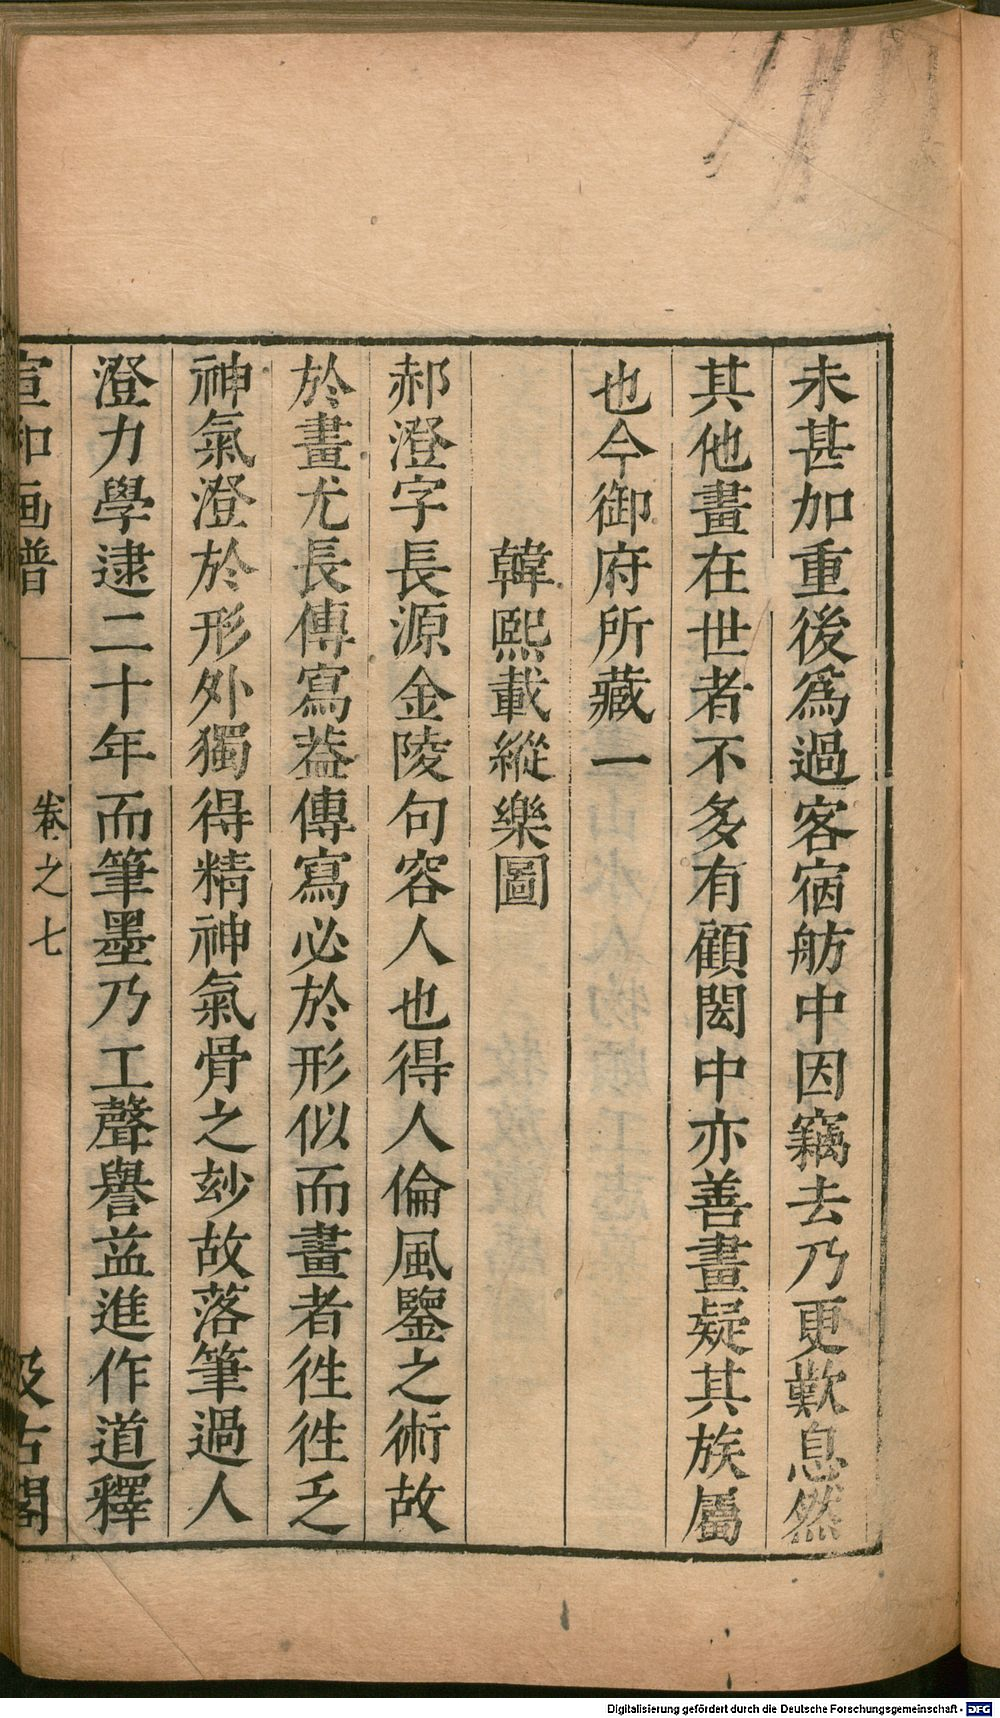 未甚加重後爲過客宿舫中因竊去乃更歎息然
其他畫在世者不多有顧閎中亦善畫疑其族屬
也今御府所藏一
韓熙載縱樂圖
郝澄字長源金陵句容人也得人倫風鑒之術故
於畫尤長傳寫葢傳寫必於形似而畫者徃徃乏
神氣澄於形外獨得精神氣骨之玅故落筆過人
澄力學逮二十年而筆墨乃工聲譽益進作道釋
宣和画譜
卷之七
汲古閣
Digitalisierung gefördert durch die Deutsche Forschungsgemeinschaft - DFG